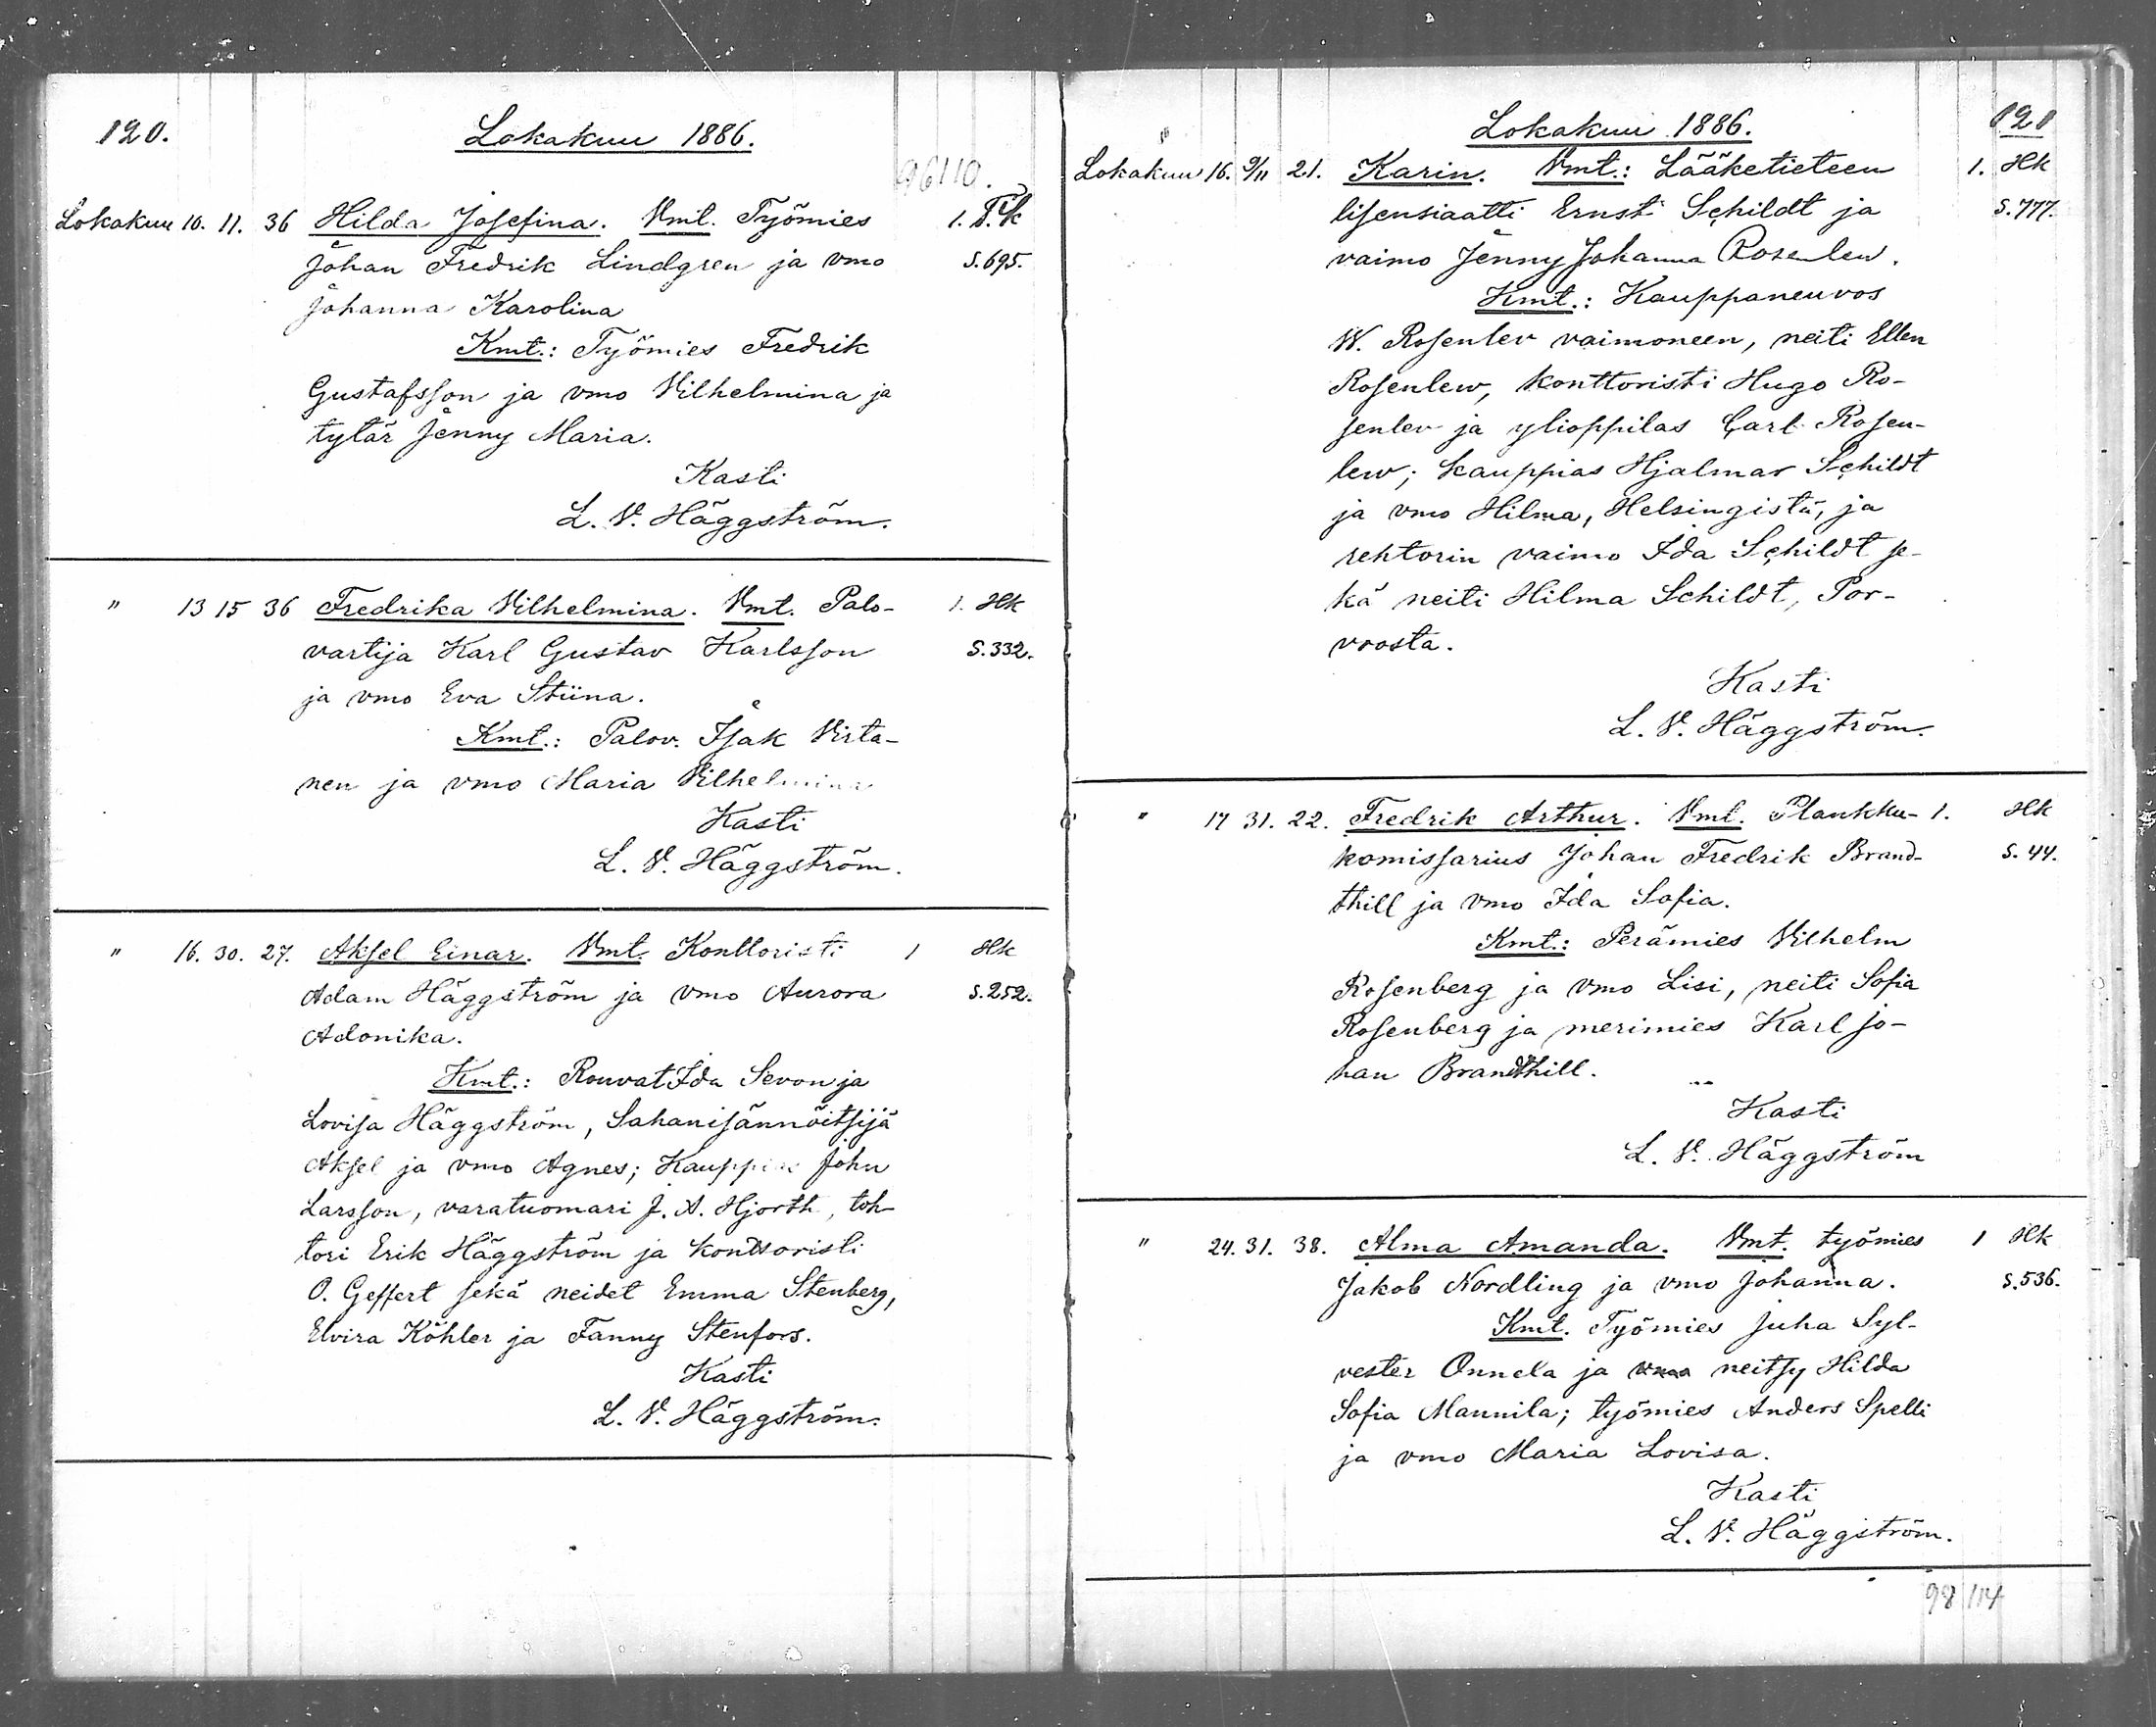 120.
Lokakuu 1886.
96 110.
Lokakuu 10. 11. 36 Hilda Josefina. Vmt. Työmies 1. T.k
Johan Fredrik Lindgren ja vmo S.695.
Johanna Karolina
Kmt.: Työmies Fredrik
Gustafsson ja vmo Vilhelmina ja
tytär Jenny Maria.
Kasti
L. V. Häggström.
" 13 15 36 Fredrika Vilhelmina. Vmt. Palo- 1. Hk
vartija Karl Gustav Karlsson S.332.
ja vmo Eva Stiina.
Kmt.: Palov. Isak Virta-
nen ja vmo Maria Vilhelmina
Kasti
L. V. Häggström.
" 16. 30. 27. Aksel Einar. Vmt. Konttoristi 1 Hk
Adam Häggström ja vmo Aurora S.252.
Adonika.
Kmt.: Rouvat Ida Sevon ja
Lovisa Häggström, Sahanisännöitsijä
Aksel ja vmo Agnes; Kauppias John
Larsson, varatuomari J. A. Hjorth, toh-
tori Erik Häggström ja konttoristi
O. Geffert sekä neidet Emma Stenberg,
Elvira Köhler ja Fanny Stenfors.
Kasti
L. V. Häggström.
Lokakuu 1886.
121
Lokakuu 16. 9/11 21. Karin. Vmt.: Lääketieteen 1. Hk
lisensiaatti Ernst Schildt ja S.777.
vaimo Jenny Johanna Rosenlew.
Kmt.: Kauppaneuvos
W. Rosenlew vaimoneen, neiti Ellen
Rosenlew, konttoristi Hugo Ro-
senlew ja ylioppilas Carl Rosen-
lew; kauppias Hjalmar Schildt
ja vmo Hilma, Helsingistä, ja
rehtorin vaimo Ida Schildt se-
kä neiti Hilma Schildt, Por-
voosta.
Kasti
L. V. Häggström.
" 17 31. 22. Fredrik Arthur. Vmt. Plankku- 1. Hk
komissarius Johan Fredrik Brand- S.44.
thill ja vmo Ida Sofia.
Kmt.: Perämies Vilhelm
Rosenberg ja vmo Lisi, neiti Sofia
Rosenberg ja merimies Karl Jo-
han Brandthill.
Kasti
L. V. Häggström
" 24. 31. 38. Alma Amanda. Vmt. työmies 1 Hk
Jakob Nordling ja vmo Johanna. S.536.
Kmt. Työmies Juha Syl-
vester Onnela ja vmo neitsy Hilda
Sofia Mannila; työmies Anders Spelli
ja vmo Maria Lovisa.
Kasti
L. V. Häggström.
98 114